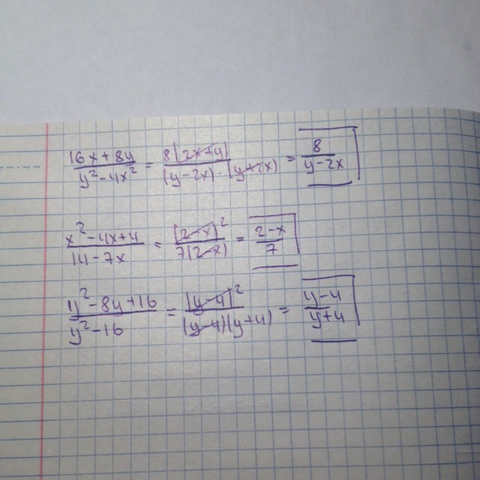 (16x+8y)/(y²-4x²) = 8(2x+y)/((y-2x)·(y+2x)) = 8/(y-2x)
(x²-4x+4)/(14-7x) = (2-x)²/(7(2-x)) = (2-x)/7
(y²-8y+16)/(y²-16) = (y-4)²/((y-4)(y+4)) = (y-4)/(y+4)